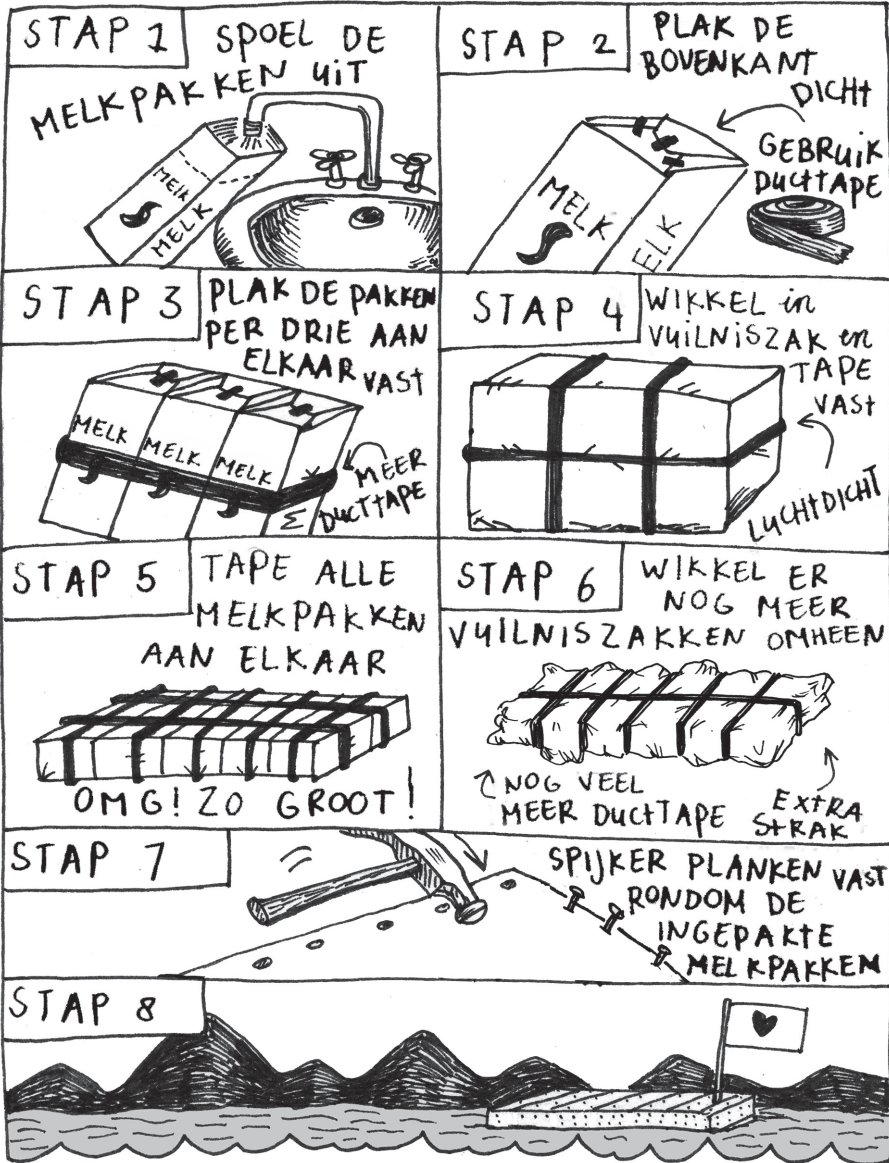 STAP 1
SPOEL DE
MELKPAKKEN UiT
MELK
MELK
STAP 2
PLAK DE
BOVENKANT
DICHT
GEBRUIK
DUCTTAPE
MELK
ELK
STAP 3
PLAK DE PAKKEN
PER DRIE AAN
ELKAAR VAST
MELK
MELK
MELK
M
MEER
DUCTTAPE
STAP 4
WIKKEL in
VUILNISZAK en
TAPE
VAST
LUCHTDICHT
STAP 5
TAPE ALLE
MELKPAKKEN
AAN ELKAAR
OMG! ZO GROOT!
STAP 6
WIKKEL ER
NOG MEER
VUILNISZAKKEN OMHEEN
NOG VEEL
MEER DUCTTAPE
EXTRA
STRAK
STAP 7
SPIJKER PLANKEN VAST
RONDOM DE
INGEPAKTE
MELKPAKKEN
STAP 8